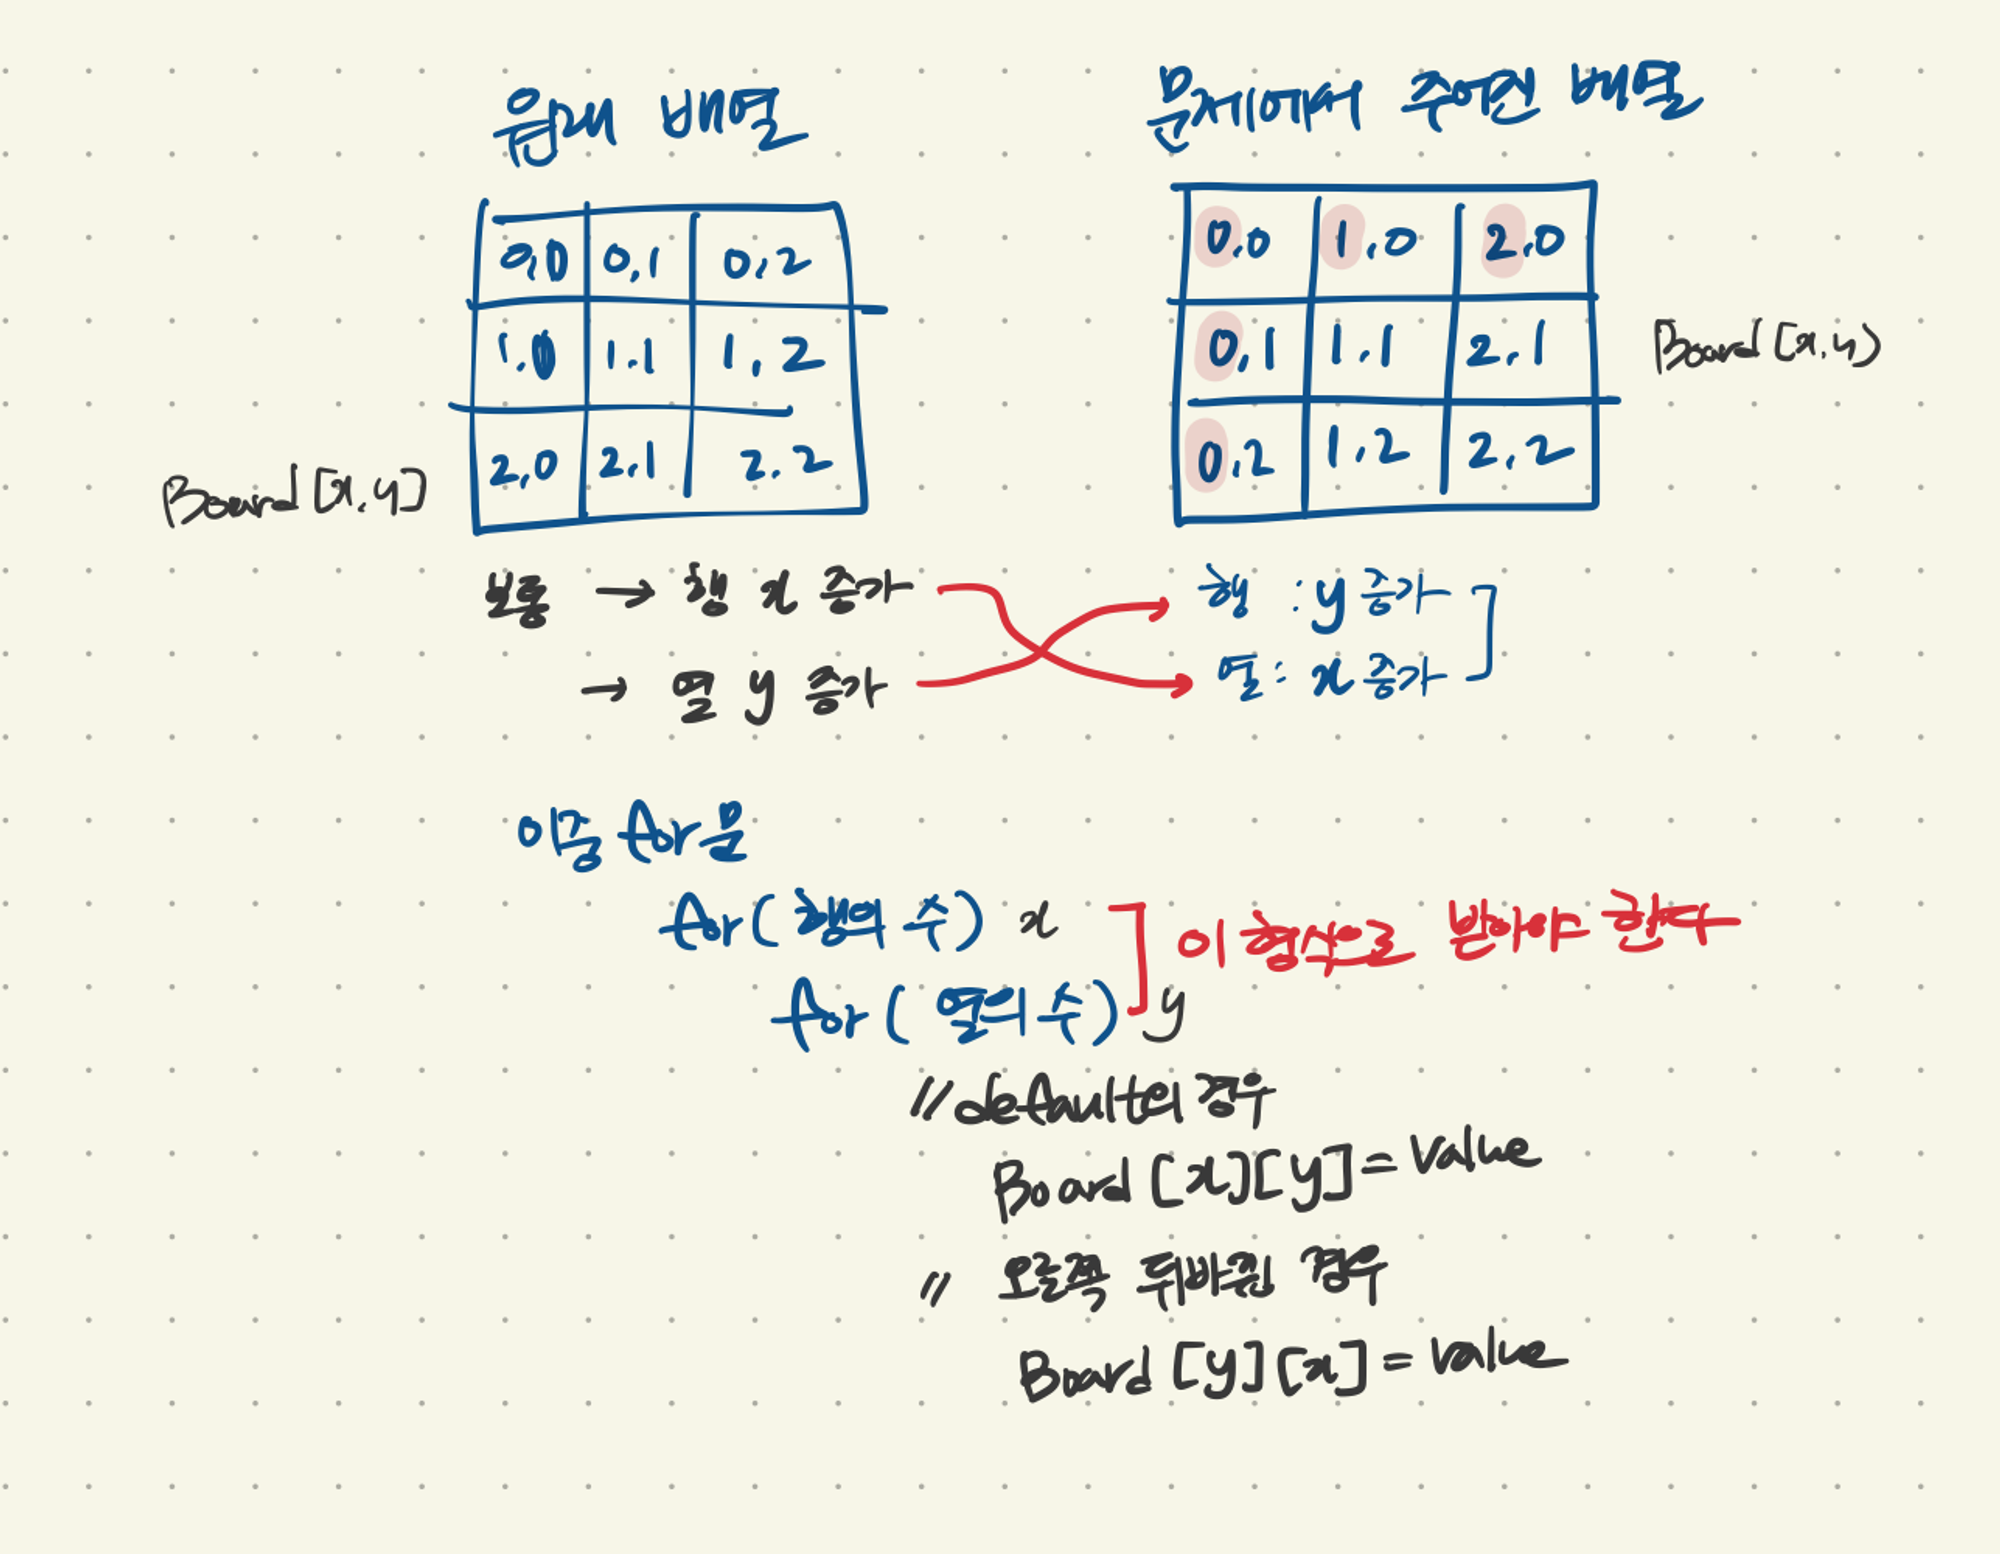 원래 배열
문제에서 주어진 배열
0,0 0,1 0,2
1.0 1.1 1,2
2,0 2,1 2.2
Board [x,y]
0.0 1.0 2.0
0,1 1.1 2.1
0.2 1,2 2,2
Board [x,y)
보통 → 행 x 증가
→ 열 y 증가
행 : y 증가
열 : x 증가
이중 for문
for( 행의 수) x
for( 열의 수) y
이 형식으로 받아야 한다
// default의 경우
Board [x][y] = value
// 오른쪽 뒤바뀐 경우
Board [y][x] = value